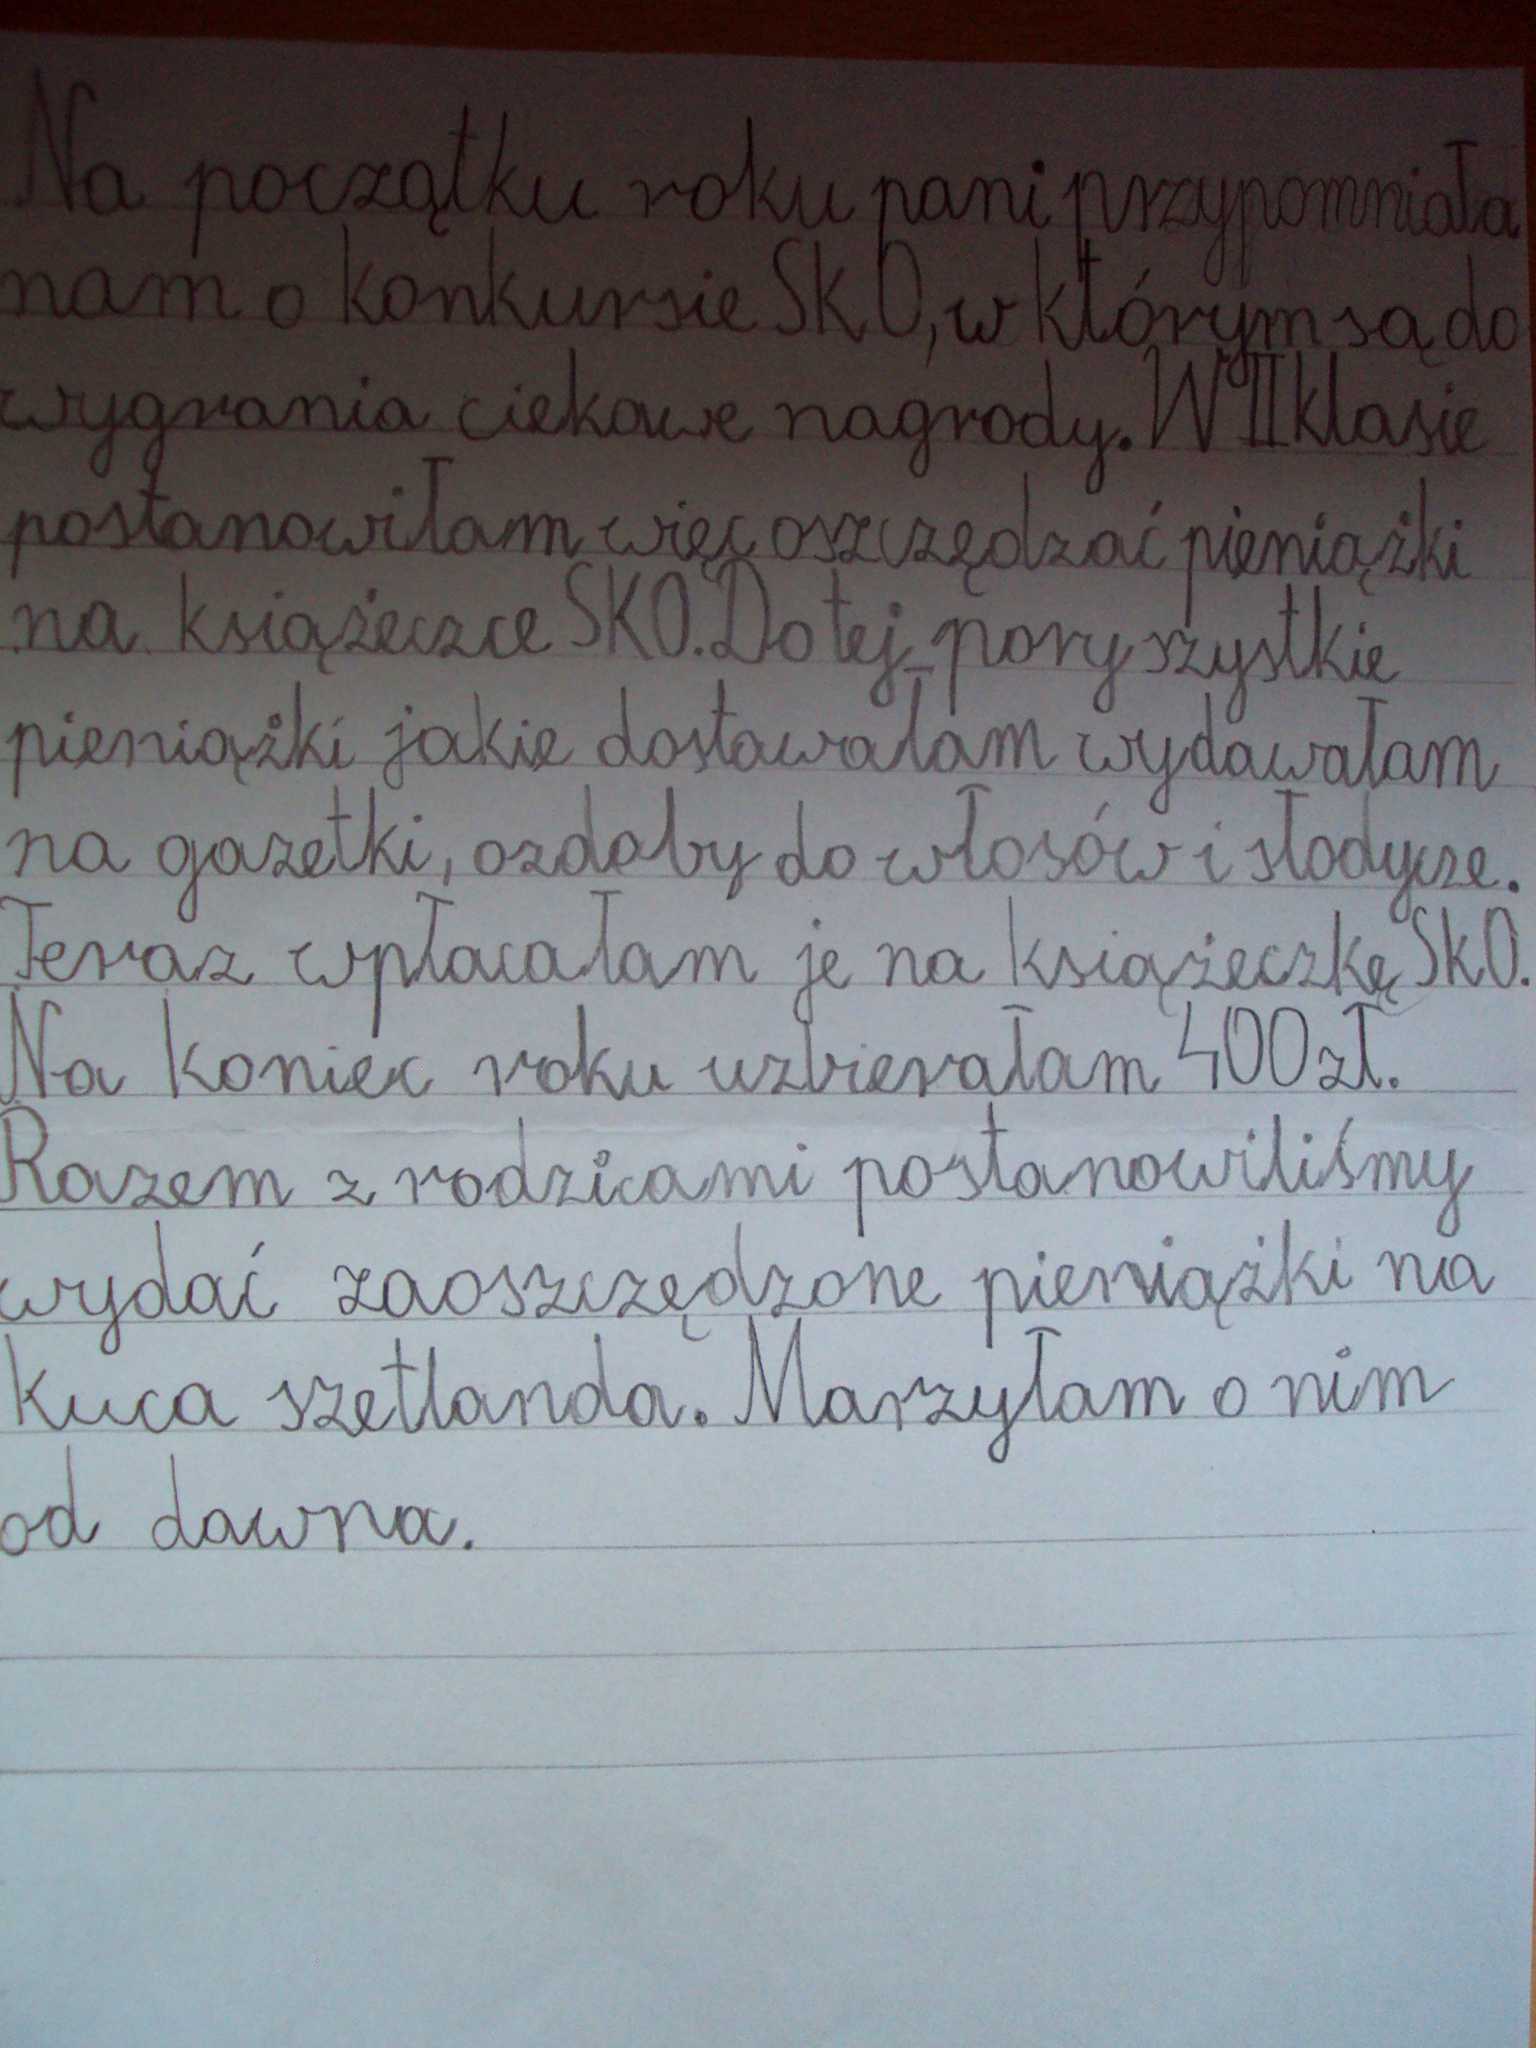 Na początku roku pani przypomniała
nam o konkursie SKO, w którym są do
wygrania ciekawe nagrody. W II klasie
postanowiłam więc oszczędzać pieniążki
na książeczce SKO. Do tej pory szystkie
pieniążki jakie dostawałam wydawałam
na gazetki, ozdoby do włosów i słodycze.
Teraz wpłacałam je na książeczkę SKO.
Na koniec roku uzbierałam 400 zł.
Razem z rodzicami postanowiliśmy
wydać zaoszczędzone pieniążki na
kuca szetlanda. Marzyłam o nim
od dawna.